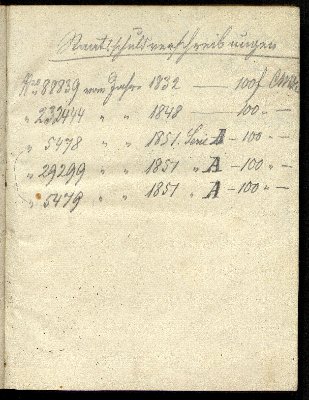 Staatsschuldverschreibungen
Nro 88839 vom Jahre 1832 — 100 f
" 232444 " " 1848 — 100 " —
" 5478 " " 1851. Serie A — 100 " —
" 29299 " " 1851 " A — 100 " —
" 5479 " " 1851 " A — 100 " —